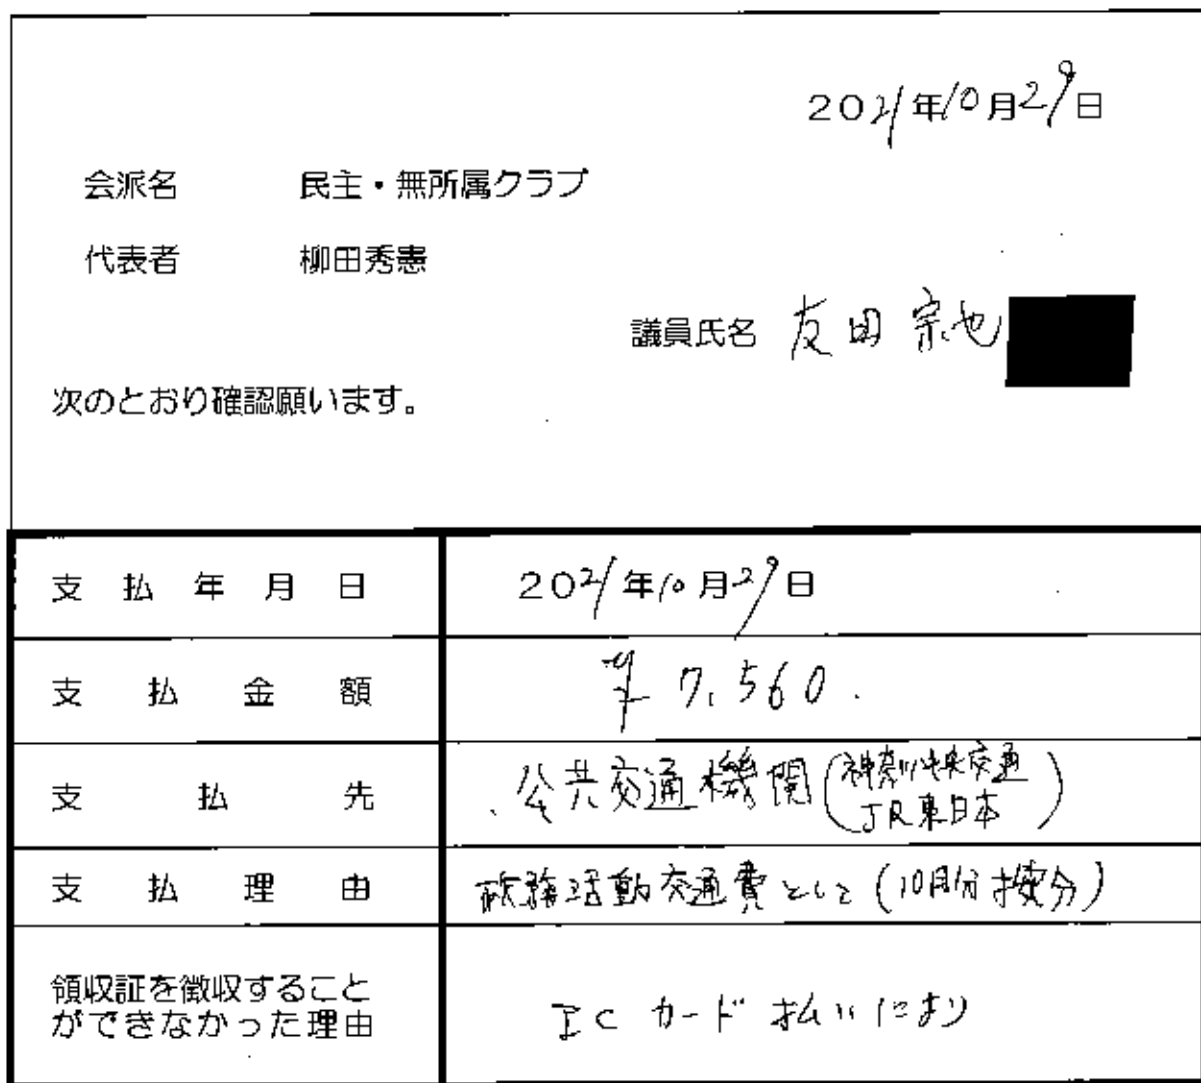 2021年10月29日
会派名 民主・無所属クラブ
代表者 柳田秀憲
議員氏名 友田宗也
次のとおり確認願います。
支払年月日 2021年10月29日
支払金額 ¥7,560.
支払先 公共交通機関(神奈川中央交通
JR東日本)
支払理由 政務活動交通費として(10月分按分)
領収証を徴収すること
ができなかった理由
ICカード払いにより